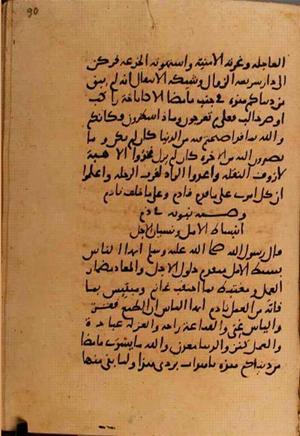 90
العاجلة وغرته الامنية واستهوته الخدعة فركن
الى دار سريعة الزوال وشيكة الانتقال انه لم يبق
من دنياكم هذه في جنب ما مضا الا كاناخة راكب
او صر حالب فعلى م تعرجون وماذا تنتظرون فكانكم
والله بما قد اصبحتم فيه من الدنيا كان لم يكن وما
تصيرون اليه من الاخرة كان لم يزل فخذوا الاهبة
لازوف النقلة واعدوا الزاد لقرب الرحلة واعلموا
ان كل امرى على ما قدم قادم وعلى ما خلف نادم
انبساط الامل ونسيان الاجل
قال رسول الله صلى الله عليه وسلم ايها الناس
بسيط الامل متقدم حلول الاجل والمعاد مضمار
العمل ومغتبط بما احتقب غانم ومبتيس بما
فاته من العمل نادم ايها الناس ان الطمع فقر
والياس غنى والقناعة راحة والعزلة عبادة
والعمل كنز والدنيا معدن والله ما يسوى ما مضا
من دنياكم هذه باهداب بردي هذا ولما بقي منها